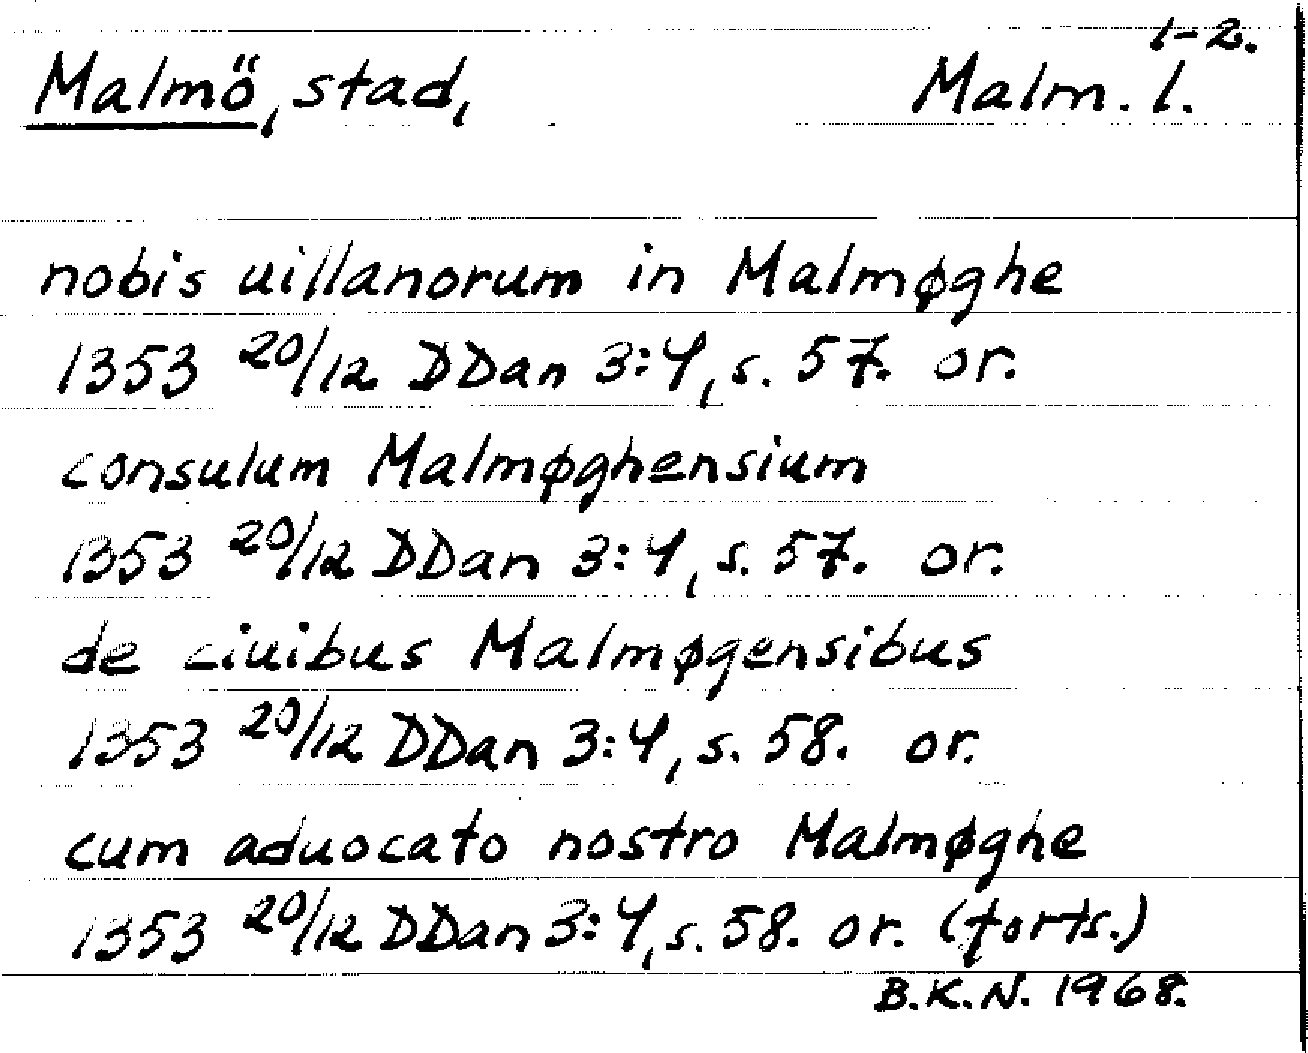 1-2.
Malmö, stad, Malm. l.
nobis uillanorum in Malmøghe
1353 20/12 DDan 3:4, s. 57. or.
consulum Malmøghensium
1353 20/12 DDan 3:4, s. 57. or.
de ciuibus Malmøgensibus
1353 20/12 DDan 3:4, s. 58. or.
cum aduocato nostro Malmøghe
1353 20/12 DDan 3:4, s. 58. or. (forts.)
B.K.N. 1968.